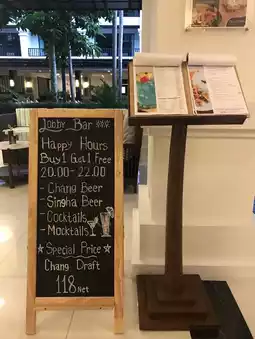 Lobby Bar
Happy Hours
Buy 1 Get 1 Free
20.00 - 22.00
- Chang Beer
- Singha Beer
- Cocktails
- Mocktails
Special Price
Chang Draft
118 Net